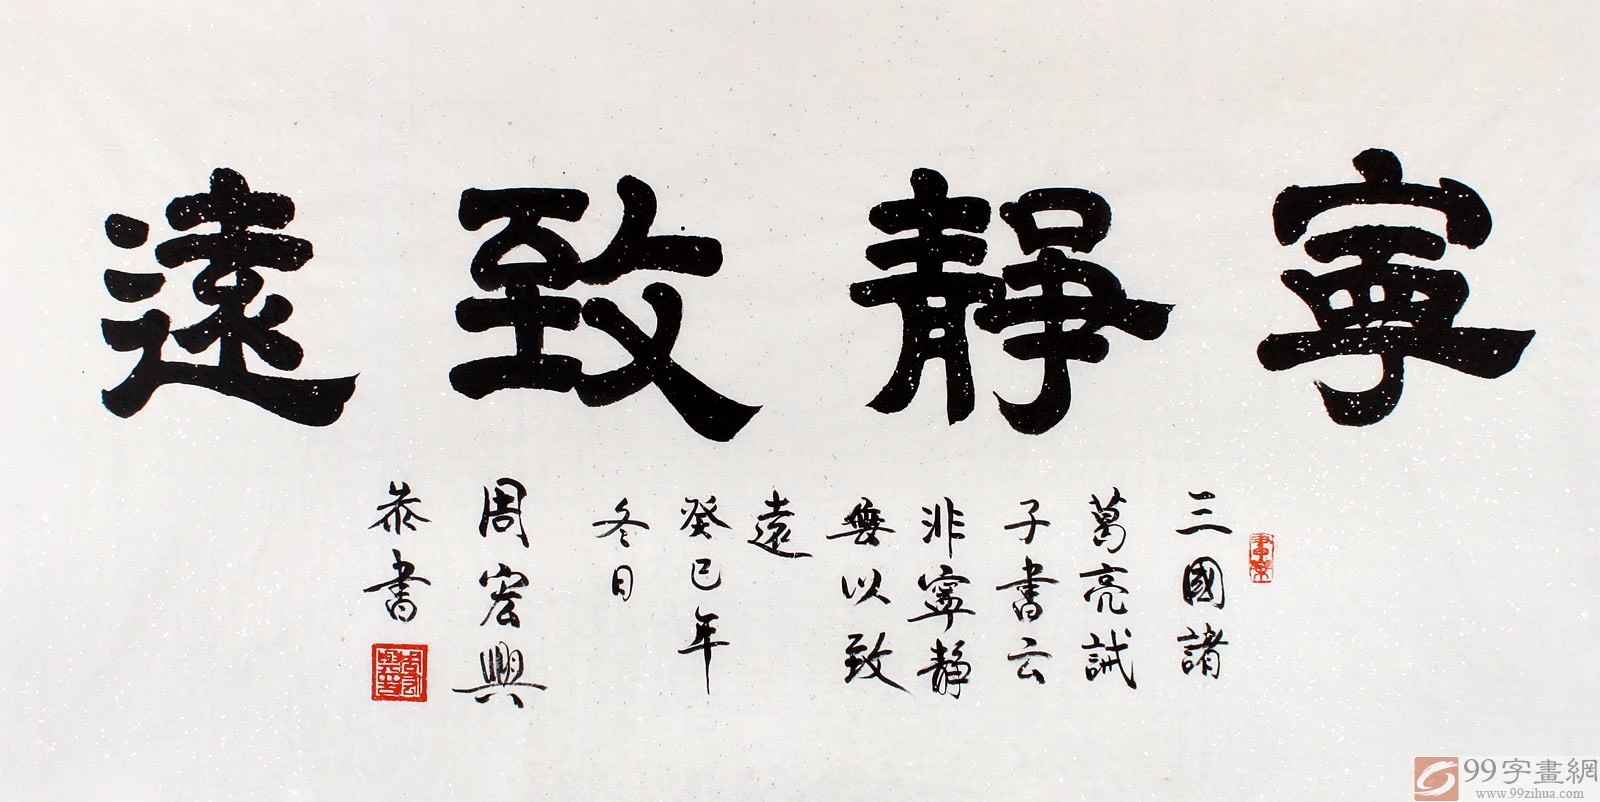 寧靜致遠
三國諸
葛亮誡
子書云
非寧静
無以致
遠
癸巳年
冬日
周宏興
恭書
99字畫網
www.99zihua.com